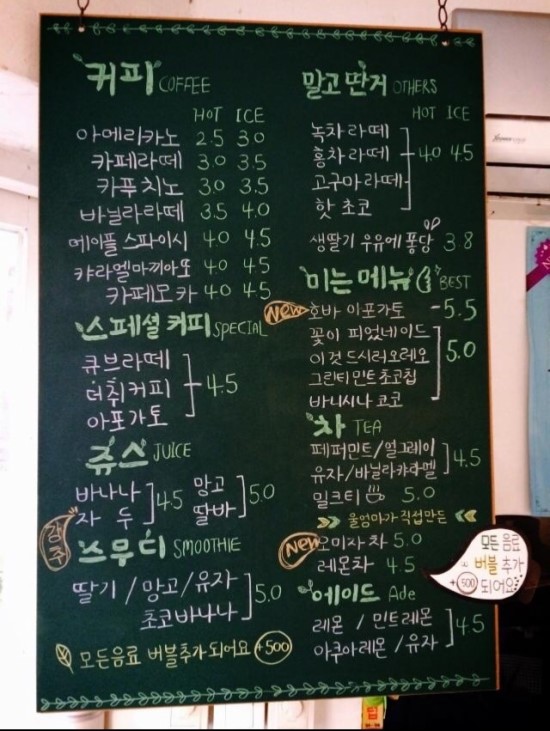 커피 COFFEE
HOT ICE
아메리카노 2.5 3.0
카페라떼 3.0 3.5
카푸치노 3.0 3.5
바닐라라떼 3.5 4.0
메이플 스파이시 4.0 4.5
캬라멜마끼아또 4.0 4.5
카페모카 4.0 4.5
스페셜 커피 SPECIAL
큐브라떼
더취커피 4.5
아포가토
쥬스 JUICE
바나나 4.5 망고 5.0
자두 딸바
강추
스무디 SMOOTHIE
딸기 / 망고 / 유자 5.0
초코바나나
모든음료 버블추가 되어요 +500
말고 딴거 OTHERS
HOT ICE
녹차 라떼
홍차 라떼 4.0 4.5
고구마 라떼
핫 초코
생딸기 우유에 퐁당 3.8
미는 메뉴 BEST
New 호바 이포가토 5.5
꽃이 피었네이드
이것 드시러오레오 5.0
그린티 민트 초코칩
바니시나 코코
차 TEA
페퍼민트 / 얼그레이 4.5
유자 / 바닐라캬라멜
밀크티 5.0
울엄마가 직접만든
New 오미자 차 5.0
레몬차 4.5
에이드 Ade
레몬 / 민트레몬 4.5
아쿠아레몬 / 유자
모든 음료
버블 추가
+500 되어요